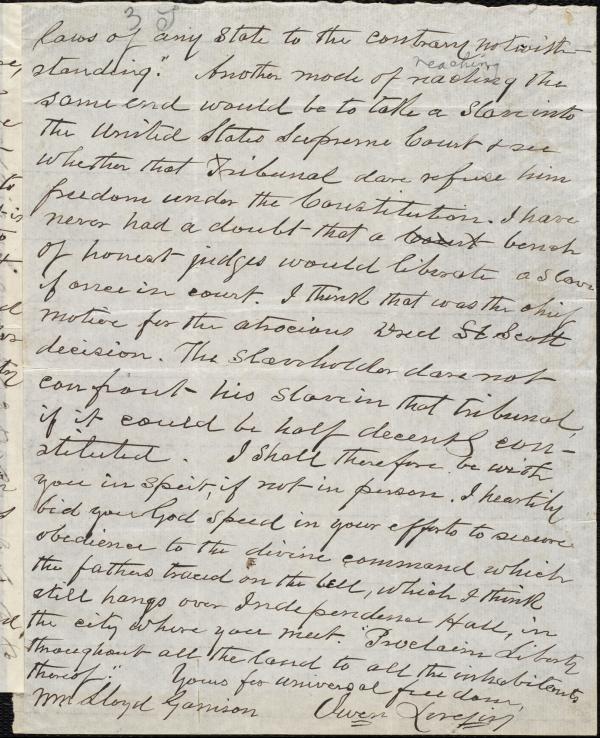 3
laws of any State to the contrary notwith-
standing." Another mode of reaching the
same end would be to take a Slave into
the United States Supreme Court & see
whether that Tribunal dare refuse him
freedom under the Constitution. I have
never had a doubt that a court bench
of honest judges would liberate a slave
if once in court. I think that was the chief
motive for the atrocious Dred St Scott
decision. The Slaveholder dare not
confront his slave in that tribunal,
if it could be half decently con-
stituted. I shall therefore be with
you in spirit, if not in person. I heartily
bid you God speed in your efforts to secure
obedience to the divine command which
the fathers traced on the bell, which I think
still hangs over Independence Hall, in
the city where you meet "Proclaim Liberty
throughout all the land to all the inhabitants
thereof." Yours for universal freedom,
Wm Lloyd Garrison Owen Lovejoy